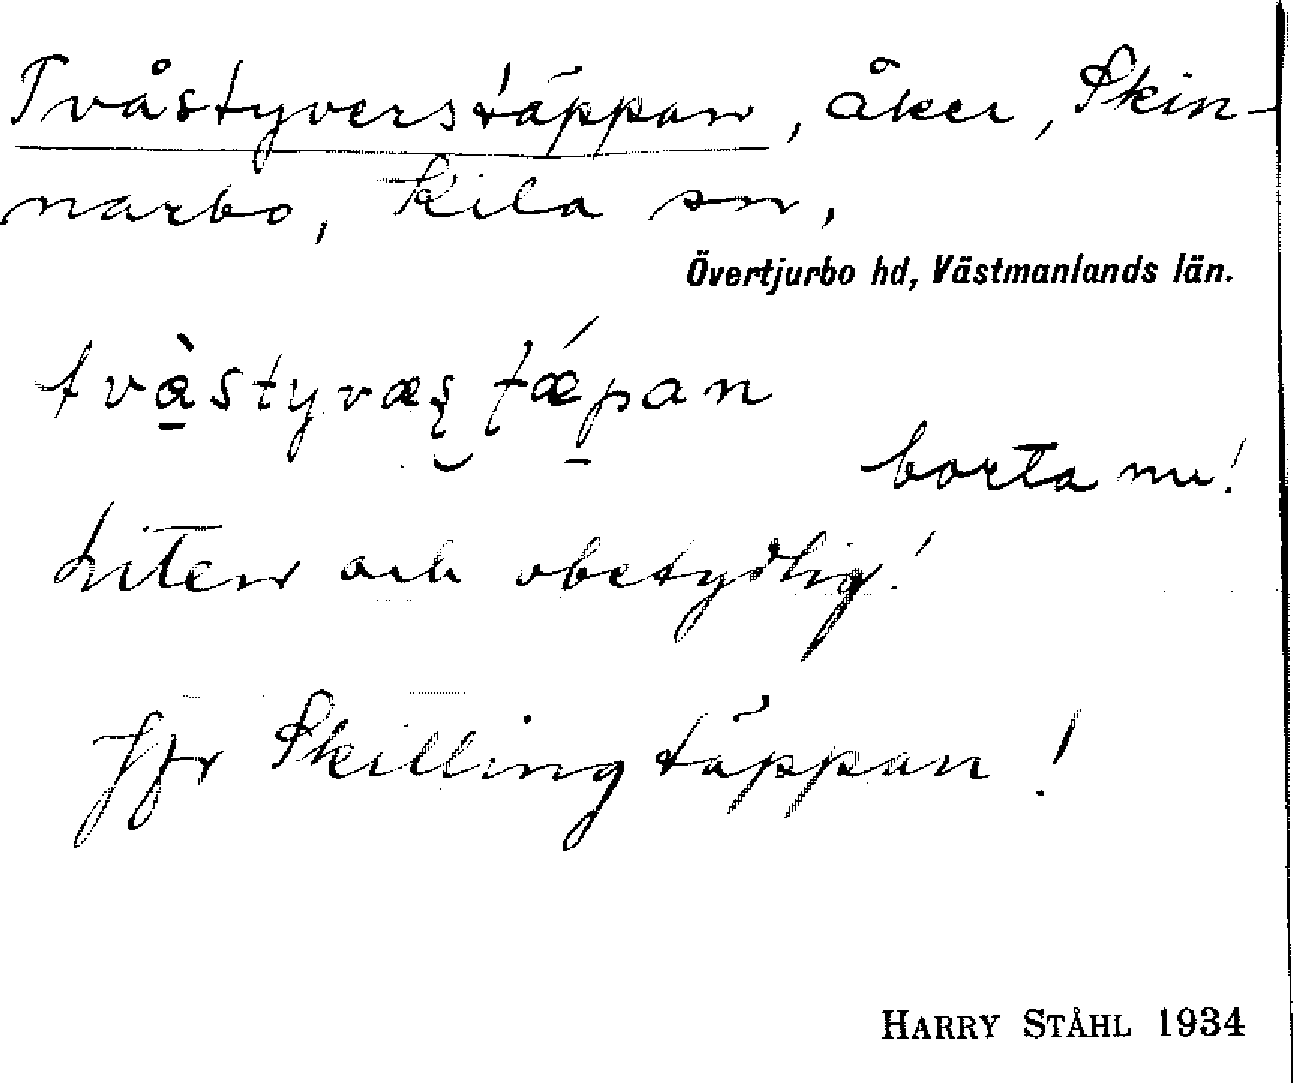 Tvåstyverstäppan, åker, Skin-
narbo, Kila sn,
Övertjurbo hd, Västmanlands län.
tvàstyvæs tǽpan
borta nu!
Liten och obetydlig!
Jfr Skillingtäppan!
HARRY STÅHL 1934